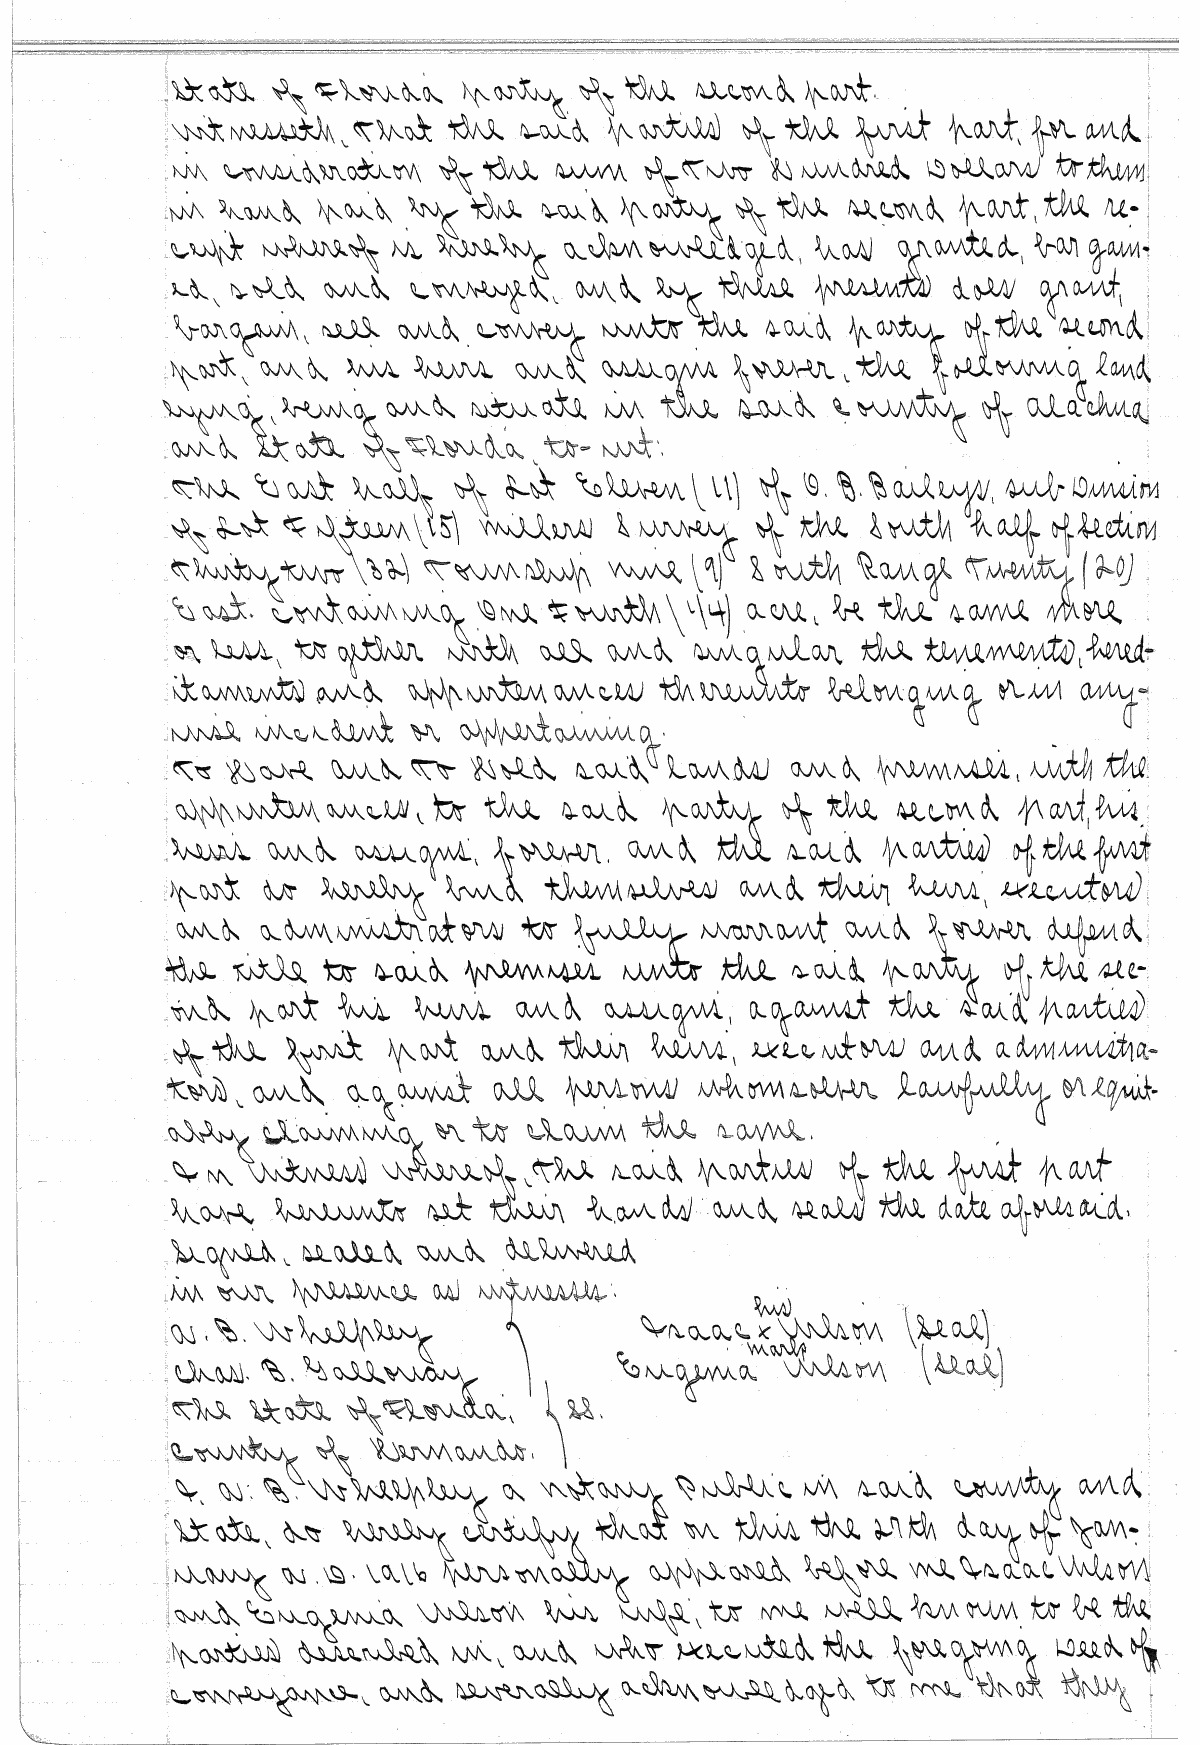 State of Florida party of the second part.
Witnesseth, That the said parties of the first part, for and
in consideration of the sum of Two Hundred Dollars to them
in hand paid by the said party of the second part, the re-
ceipt whereof is hereby acknowledged, has granted, bargain-
ed, sold and conveyed, and by these presents does grant,
bargain, sell and convey unto the said party of the second
part, and his heirs and assigns forever, the following land
lying, being and situate in the said County of Alachua
and State of Florida, to-wit:
The East half of Lot Eleven (11) of O. B. Baileys, sub Division
of Lot Fifteen (15) Millers Survey of the South half of Section
Thirty two (32) Township nine (9) South Range Twenty (20)
East. Containing One Fourth (1/4) acre, be the same more
or less, together with all and singular the tenements, hered-
itaments and appurtenances thereunto belonging or in any-
wise incident or appertaining.
To Have and To Hold said lands and premises, with the
appurtenances, to the said party of the second part, his
heirs and assigns, forever. and the said parties of the first
part do hereby bind themselves and their heirs, executors
and administrators to fully warrant and forever defend
the title to said premises unto the said party of the sec-
ond part his heirs and assigns, against the said parties
of the first part and their heirs, executors and administra-
tors, and against all persons whomsoever lawfully or equit-
ably claiming or to claim the same.
In Witness whereof, The said parties of the first part
have hereunto set their hands and seals the date aforesaid.
Signed, sealed and delivered
in our presence as witnesses:
his
A. B. Whelpley Isaac x Wilson (Seal)
mark
Chas. B. Galloway Eugenia Wilson (Seal)
The State of Florida, SS.
County of Hernando.
I, A. B. Whelpley a notary Public in said county and
State, do hereby certify that on this the 27th day of Jan-
uary A.D. 1916 personally appeared before me Isaac Wilson
and Eugenia Wilson his wife, to me well known to be the
parties described in, and who executed the foregoing Deed of
conveyance, and severally acknowledged to me that they